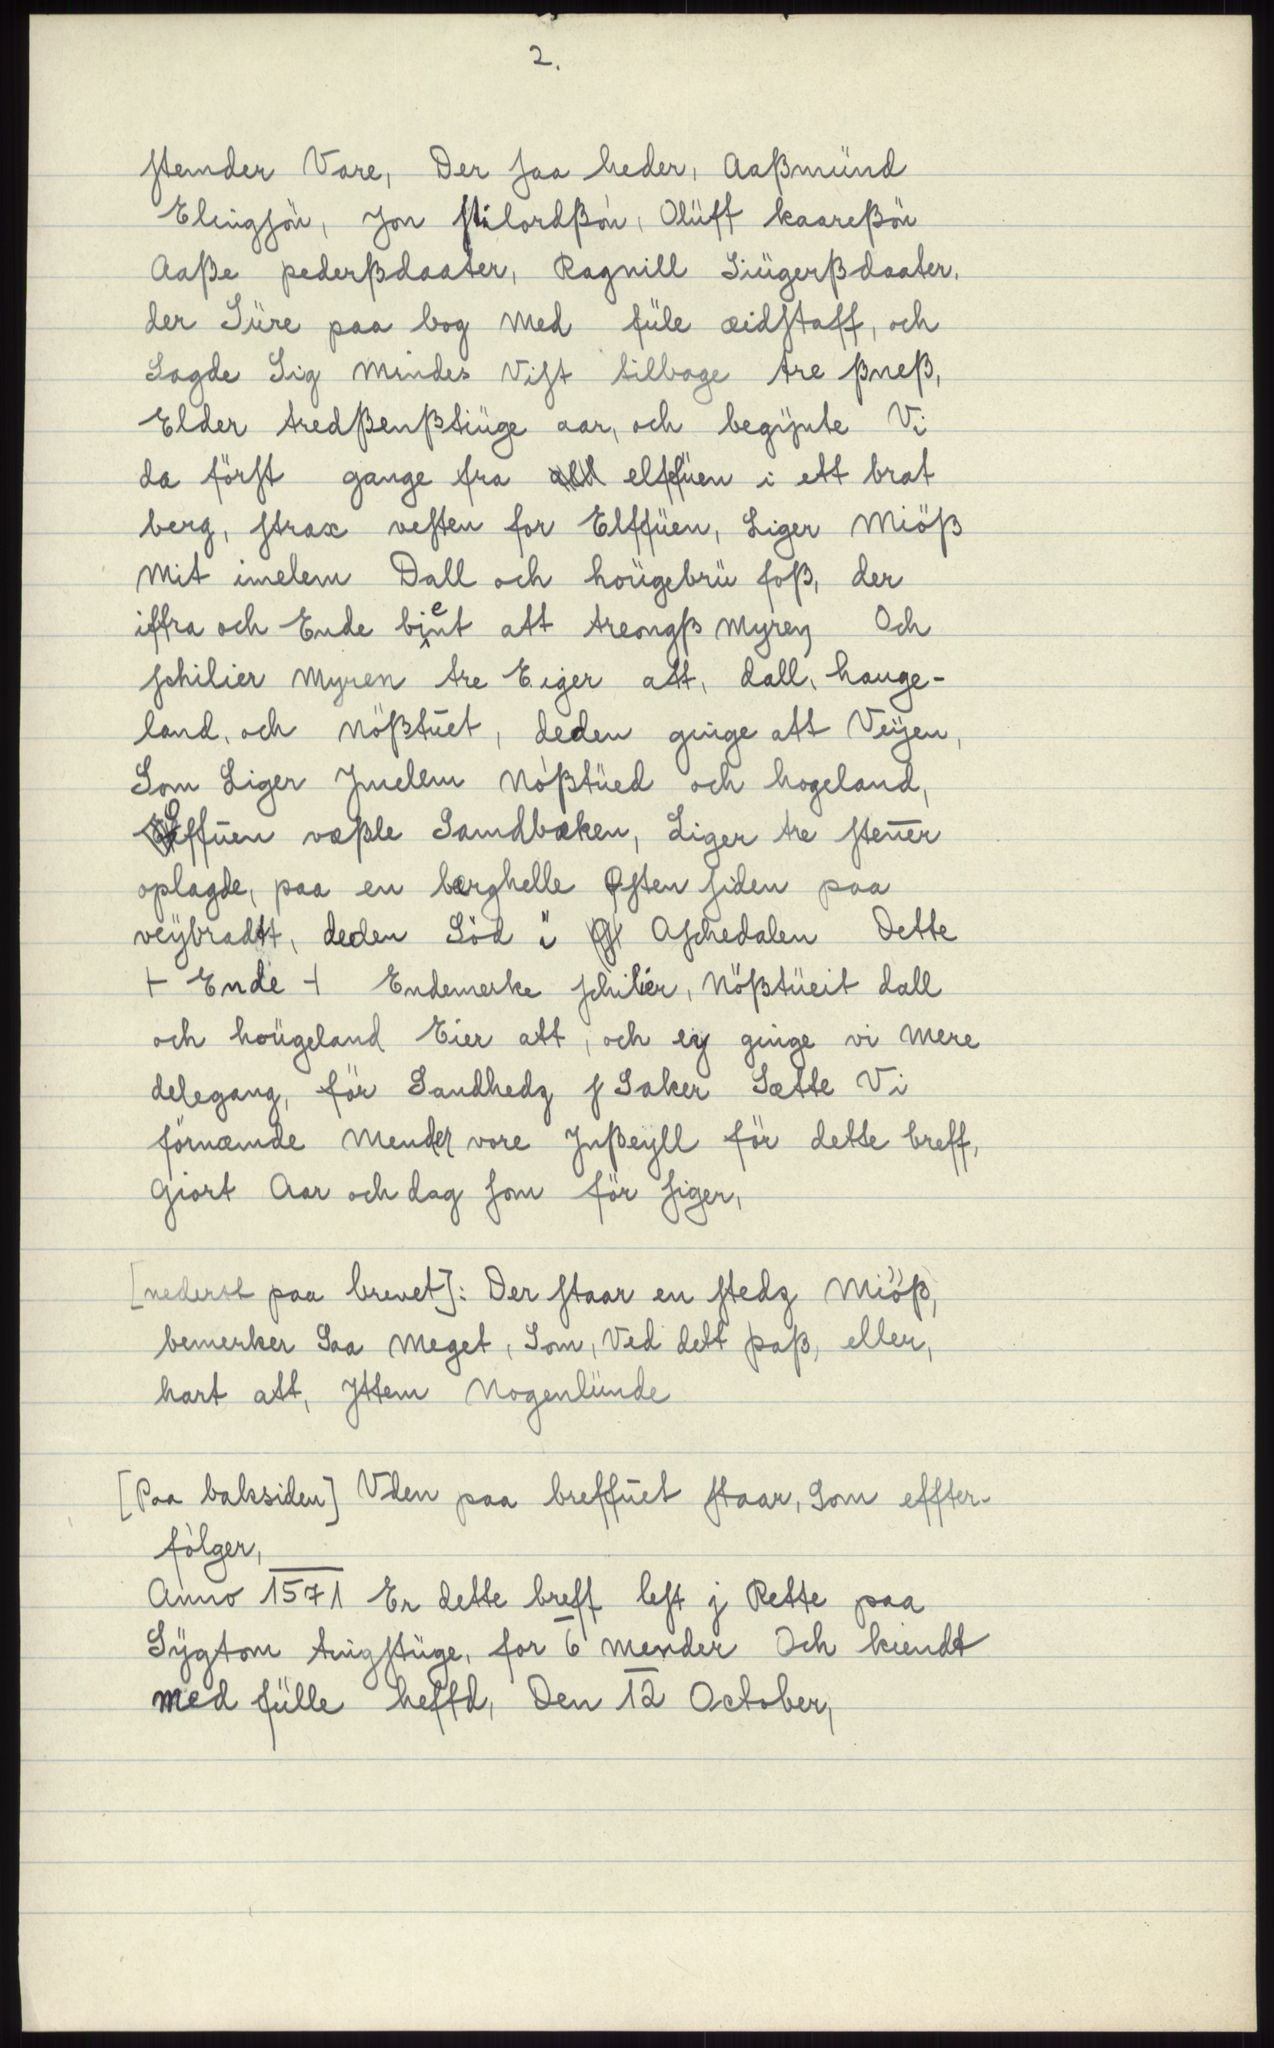 2.
stemder Vare, Der saa heder, Aaßmünd
Elingsön, Jon stilordßön, Olüff kaareßön
Aaße pederßdaater, Ragnill Siügerßdaater.
der Süre paa bog med füle æidstaff, och
Sagde Sig mindes Vist tilbage tre ßneß,
Elder tredßenßtiüge aar, och begÿnte Vi
da först gange fra elffüen i ett brat
berg, strax vesten for Elffüen, Liger Miöß
mit imelem Dall och hoügebrü foß, der
iffra och Ende bient att treongß myren Och
schilier myren tre Eiger att, dall, hauge-
land, och nößtüet, deden ginge att Veÿen,
Som Liger Jmelem Nößtüed och hogeland,
Offüen væßle Sandbæken, Liger tre stener
oplagde, paa en bærghelle Østen siden paa
veÿbradtt, deden Söd i Aschedalen Dette
+ Ende + Endemerke schilier, Nößtüeit dall
och hoügeland Eier att, och eÿ ginge vi mere
delegang, för Sandhedz s Saker Sætte Vi
förnæmde mender vore Jnßeyll för dette breff,
Giort Aar och dag som för siger,
[nederst paa brevet]: Der staar en stedz Miöß,
bemerker Saa meget, Som, Ved dett paß, eller,
hart att, Jttem Nogenlünde
[Paa baksiden] Vden paa breffüet staar, Som effter-
fölger,
Anno 1571 Er dette breff lest j Rette paa
Sÿgtom tingstüge, for 6 mender Och kiendt
med fülle heffd, Den 12 October,